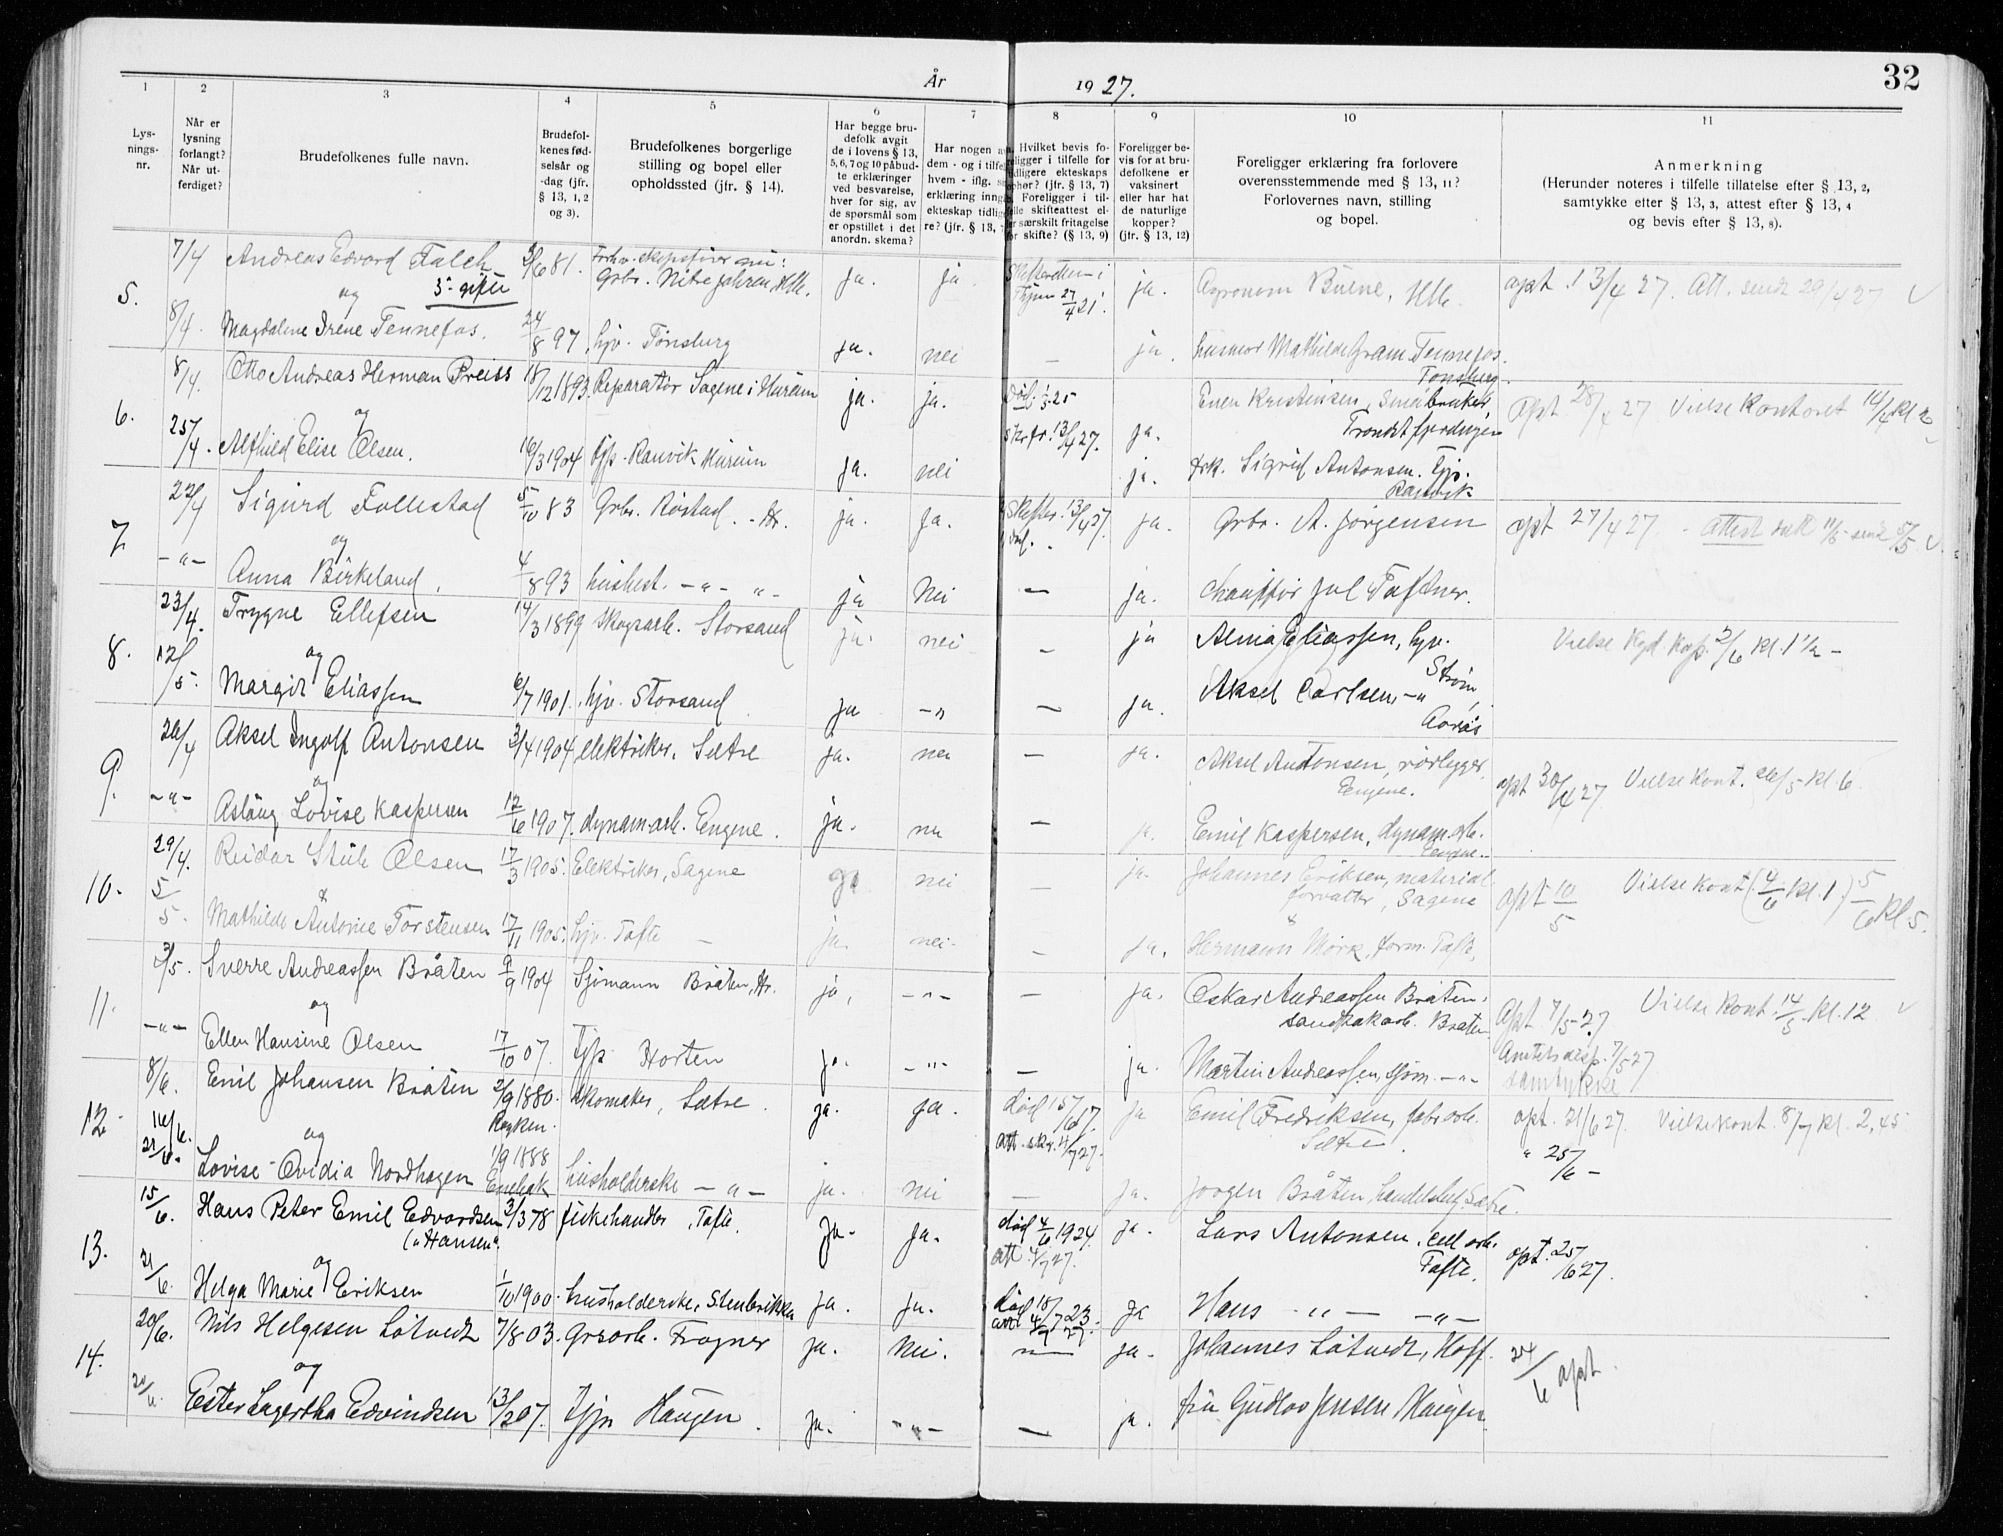 År 1927.
32
1 2 3 4 5 6 7 8 9 10 11
Lys-
nings-
nr.
Når er
lysning
forlangt?
Når ut-
ferdiget?
Brudefolkenes fulle navn.
Brudefol-
kenes fød-
selsår og
-dag (jfr.
§ 13, 1, 2
og 3).
Brudefolkenes borgerlige
stilling og bopel eller
opholdssted (jfr. § 14).
Har begge bru-
defolk avgit
de i lovens § 13,
5, 6, 7 og 10 påbud-
te erklæringer
ved besvarelse,
hver for sig, av
de spørsmål som
er opstillet i det
anordn. skema?
Har nogen a
dem - og i tilfe
hvem - iflg.
erklæring inng
ekteskap tidlig
re? (jfr. § 13,
Hvilket bevis fo-
religger i tilfelle for
tidligere ekteskaps
ophør? (jfr. § 13, 7)
Foreligger i til-
felle skifteattest el-
er særskilt fritagelse
for skifte? (§ 13, 9)
Foreligger be-
vis for at bru-
defolkene er
vaksinert
eller har hat
de naturlige
kopper?
(jfr. § 13, 12)
Foreligger erklæring fra forlovere
overensstemmende med § 13, 11?
Forlovernes navn, stilling
og bopel.
Anmerkning
(Herunder noteres i tilfelle tillatelse efter § 13, 2,
samtykke efter § 13, 3, attest efter § 13, 4
og bevis efter § 13, 8).
5.
7/4 Andreas Edvard Falch 3/6 81. ja. ja ja. Agronom Buene, Hlle. opt. 13/4 27. Att. sendt 29/4 27
og
8/4. Magdalene Irene Tennefos. 24/8 97, hjv. Tønsberg ja. nei — ja. husmor Mathilde Gram Tennefos.
Tønsberg.
6.
8/4. Otto Andreas Herman Preiss 18/12 1893. Reparatør Sagene i Hurum ja. ja. død 1/5 25 Smaabruker, opt 28/4 27 Vielse Kontoret 14/4 kl 2
og
25/4. Alfhild Elise Olsen. 16/3 1904 tjp. Ranvik Hurum ja. nei skfr. 13/4 27. ja.
ja. frk. Sigrid Antonsen. tjp.
Ranvik
7
22/4 Sigurd Follestad 5/10 83 Grbr. Røstad. - Hr. ja. ja. 13/4 27. ja. Grbr. A. Jørgensen opt 27/4 27. - Attest
og
-"- Anna Birkeland. 4/8 93 husbest. -"- "- ja Nei — ja. Chauffør Jul Toftner.
8.
23/4. Trygve Ellefsen 14/3 1899 skogsarb. Storsand ja. nei — ja Alma Eliassen, hjv. Vielse 2/6 kl. 1 1/2 -
Strøm,
og
12/5. Margit Eliassen 6/7 1901. hjv. Storsand ja -" — ja. Aksel Carlsen, -"
9.
26/4 Aksel Ingolf Antonsen 3/4 1904 elektriker. Sætre ja. nei — ja. Aksel Antonsen, rørlegger, opt 30/4 27. Vielse Kont. 26/5 kl. 6.
Engene.
og
-"- Aslaug Lovise Kaspersen 12/6 1907. dynam.arb. Engene. ja. nei — ja. Emil Kaspersen, dynam.arb.
Engene.
10.
29/4. Reidar Olsen 17/3 1905. Elektriker, Sagene ja nei — ja. Johannes Eriksen, material opt 10/5 Vielse kont (4/6 kl. 1) 5/6 kl. 5.
forvalter, Sagene
&
5/5. Mathilde Antonie Torstensen 17/11 1905. hjv. Tofte — ja. nei. — ja. Hermann Mørk, form. Tofte,
11.
3/5. Sverre Andreassen Bråten 9/9 1904 Sjømann Bråten, Hr. ja, -"- — ja. Oskar Andreassen Bråten, opt. 7/5 27 Vielse Kont. 14/5 kl. 12
Bråten
og
-"- Ellen Hansine Olsen 17/10 07. Tjp. Horten ja. -"- — ja. Martin Andreassen, sjøm. -"- Amtets disp. 7/5 27
samtykke
12.
8/6. Emil Johansen Bråten 2/9 1880. skomaker, Sætre. ja. ja. død 15/6 17. ja Emil Fredriksen, fabr.arb. opt. 21/6 27. Vielse kont. 8/7 kl. 2,45
Røyken.
16/6. og att. skr. 4/7 27. Sætre. " 25/6 -
21/6. Lovise Ovidia Nordhagen 1/9 1888 husholderske -"- ja. nei — ja. Jørgen Bråten Sætre.
Enebak
13.
15/6. Hans Peter Emil Edvardsen 3/3 78 fiskehandler, Tofte. ja. ja. død 4/6 1924 ja. Lars Antonsen. cell arb. opt. 25/6 27.
("Hansen". att 4/7 27. Tofte.
og
21/6. Helga Marie Eriksen 1/10 1900. husholderske, Stenbrikka ja. ja. død 18/7 23. ja Hans -"- -"-
att 4/7 27.
14.
20/6. Nils Helgesen Løtvedt 7/8 03. Grsarb. Frogner ja. Nei. — ja. Johannes Løtvedt, Hoff. 24/6 opt.
og
20/6. Ester Lagertha Edvindsen 13/2 07. tjp Haugen. ja. -"- — ja. fru Gudlos Jensen Haugen.